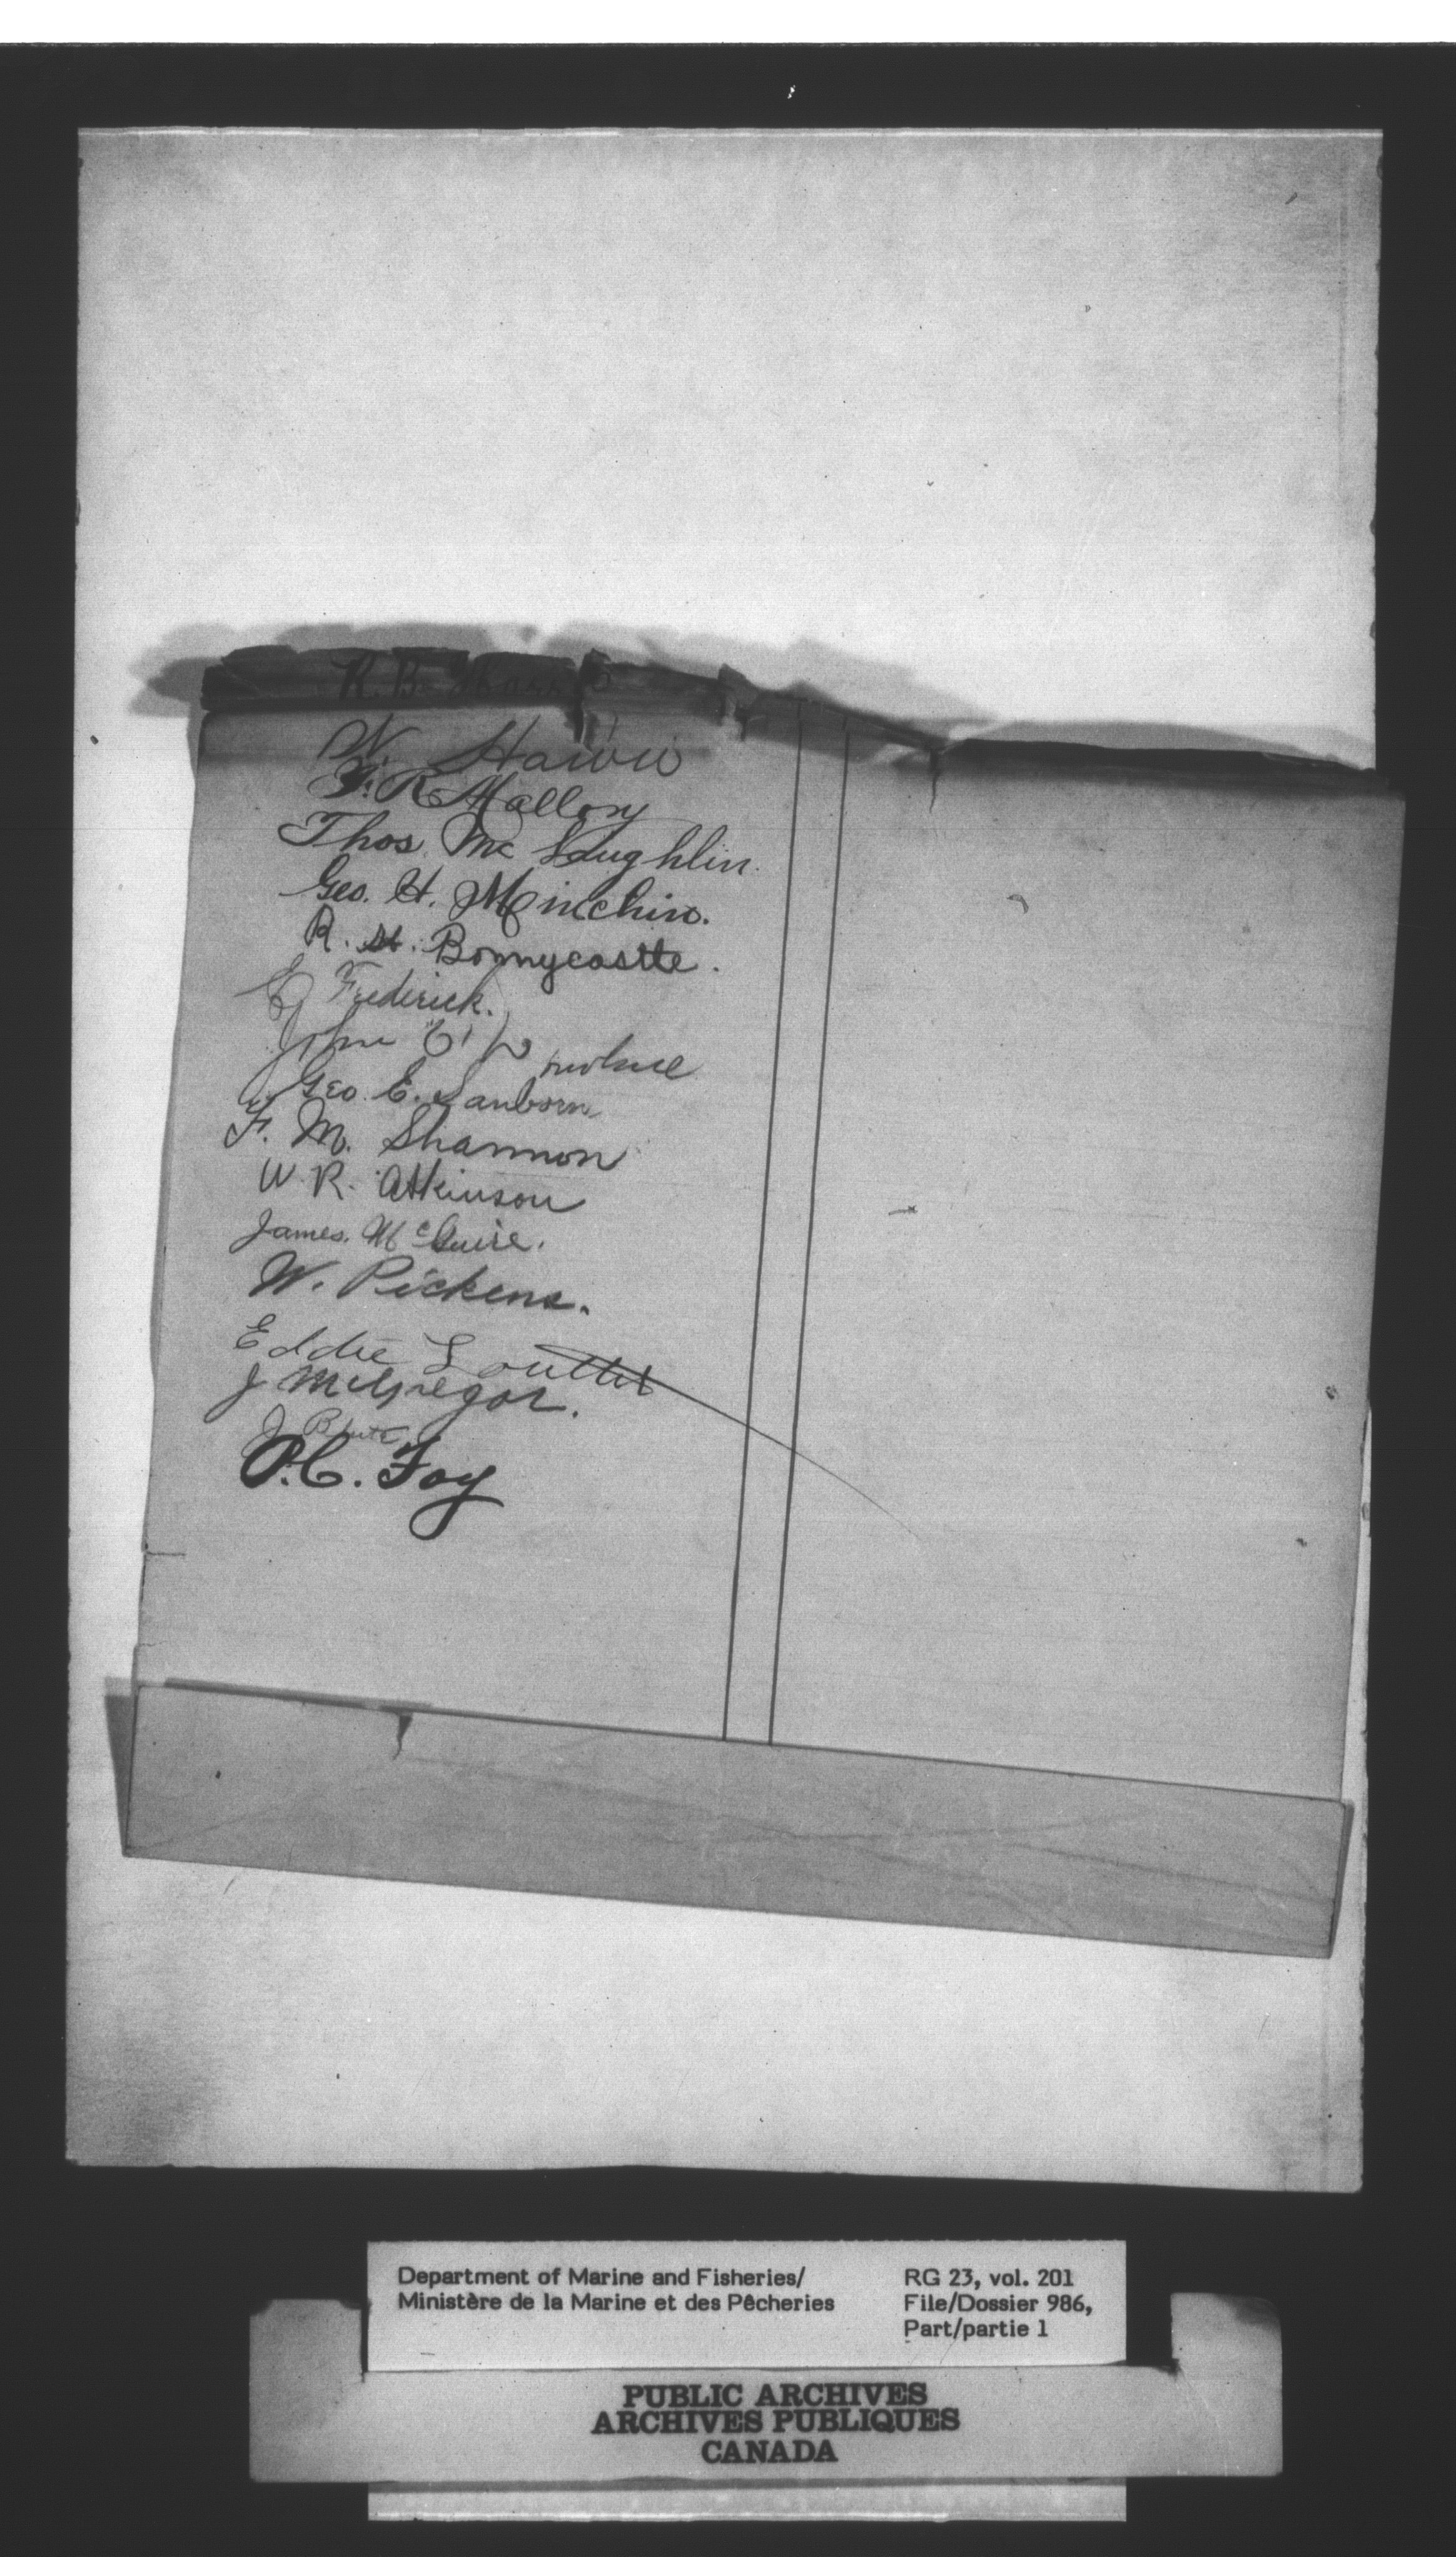 R. B.
W Hawie
F. R. Mallory
Thos. Mc Laughlin.
Geo. H. Minchin.
R. H. Bonnycastle.
E Frederick.
John E.
Geo. E. Sanborn
F. M. Shannon
W. R. Atkinson
James. McGuire.
W. Pickens.
Eddie Louttit
J McGregor.
J
P. C. Foy
Department of Marine and Fisheries/
Ministère de la Marine et des Pêcheries
RG 23, vol. 201
File/Dossier 986,
Part/partie 1
PUBLIC ARCHIVES
ARCHIVES PUBLIQUES
CANADA